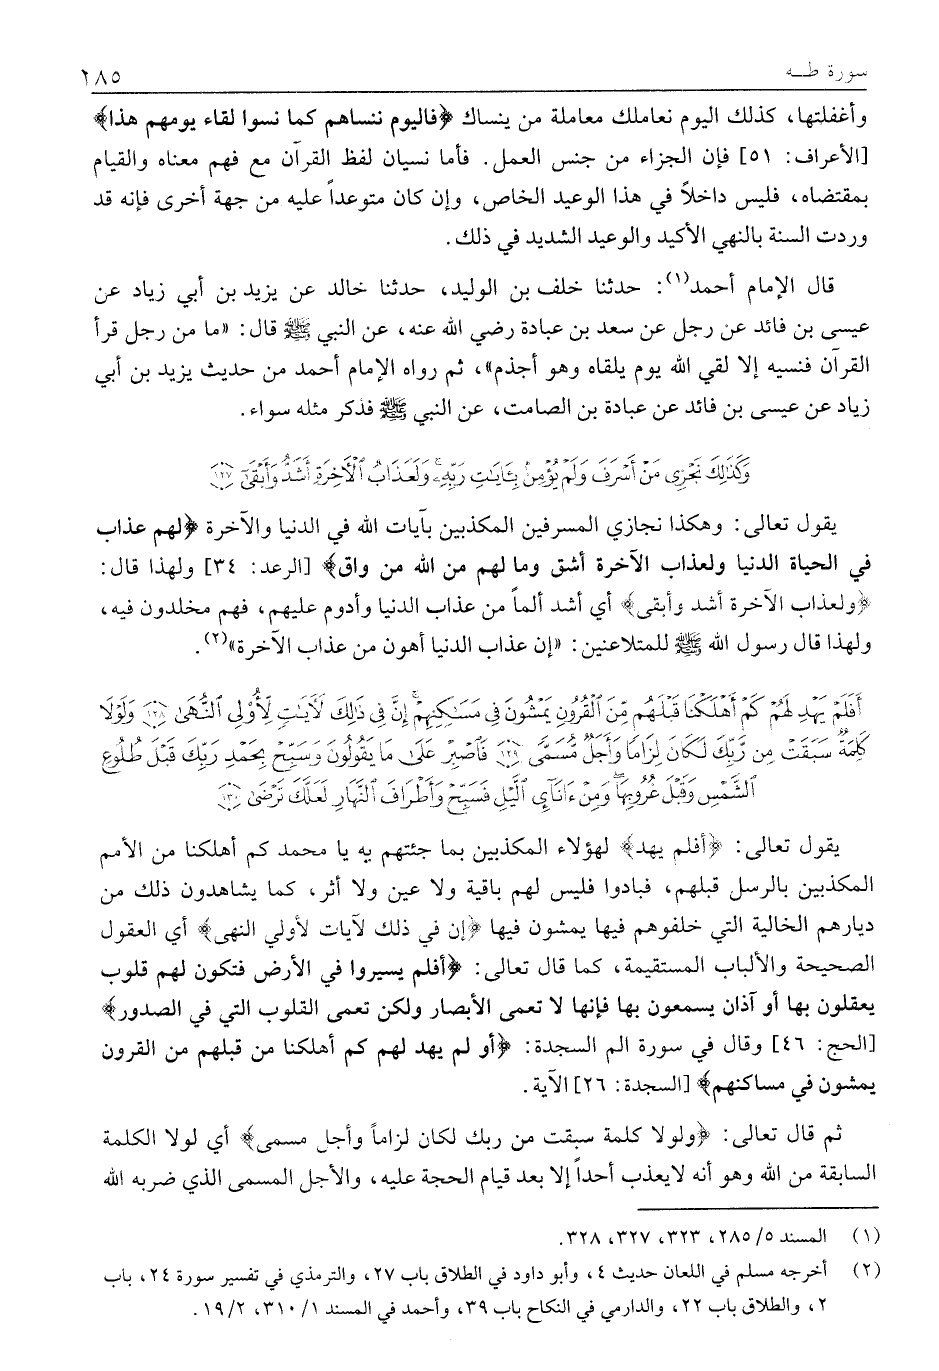 سورة طـه
٢٨٥
وأغفلتها، كذلك اليوم نعاملك معاملة من ينساك ﴿فاليوم ننساهم كما نسوا لقاء يومهم هذا﴾
[الأعراف: ٥١] فإن الجزاء من جنس العمل. فأما نسيان لفظ القرآن مع فهم معناه والقيام
بمقتضاه، فليس داخلاً في هذا الوعيد الخاص، وإن كان متوعداً عليه من جهة أخرى فإنه قد
وردت السنة بالنهي الأكيد والوعيد الشديد في ذلك.
قال الإمام أحمد(١): حدثنا خلف بن الوليد، حدثنا خالد عن يزيد بن أبي زياد عن
عيسى بن فائد عن رجل عن سعد بن عبادة رضي الله عنه، عن النبي ﷺ قال: «ما من رجل قرأ
القرآن فنسيه إلا لقي الله يوم يلقاه وهو أجذم»، ثم رواه الإمام أحمد من حديث يزيد بن أبي
زياد عن عيسى بن فائد عن عبادة بن الصامت، عن النبي ﷺ فذكر مثله سواء.
وَكَذَٰلِكَ نَجْزِى مَنْ أَسْرَفَ وَلَمْ يُؤْمِنۢ بِـَٔايَـٰتِ رَبِّهِۦ ۚ وَلَعَذَابُ ٱلْـَٔاخِرَةِ أَشَدُّ وَأَبْقَىٰٓ ﴿١٢٧﴾
يقول تعالى: وهكذا نجازي المسرفين المكذبين بآيات الله في الدنيا والآخرة ﴿لهم عذاب
في الحياة الدنيا ولعذاب الآخرة أشق وما لهم من الله من واق﴾ [الرعد: ٣٤] ولهذا قال:
﴿ولعذاب الآخرة أشد وأبقى﴾ أي أشد ألماً من عذاب الدنيا وأدوم عليهم، فهم مخلدون فيه،
ولهذا قال رسول الله ﷺ للمتلاعنين: «إن عذاب الدنيا أهون من عذاب الآخرة»(٢).
أَفَلَمْ يَهْدِ لَهُمْ كَمْ أَهْلَكْنَا قَبْلَهُم مِّنَ ٱلْقُرُونِ يَمْشُونَ فِى مَسَـٰكِنِهِمْ ۗ إِنَّ فِى ذَٰلِكَ لَـَٔايَـٰتٍ لِّأُو۟لِى ٱلنُّهَىٰ ﴿١٢٨﴾ وَلَوْلَا
كَلِمَةٌ سَبَقَتْ مِن رَّبِّكَ لَكَانَ لِزَامًا وَأَجَلٌ مُّسَمًّى ﴿١٢٩﴾ فَٱصْبِرْ عَلَىٰ مَا يَقُولُونَ وَسَبِّحْ بِحَمْدِ رَبِّكَ قَبْلَ طُلُوعِ
ٱلشَّمْسِ وَقَبْلَ غُرُوبِهَا ۖ وَمِنْ ءَانَآئِ ٱلَّيْلِ فَسَبِّحْ وَأَطْرَافَ ٱلنَّهَارِ لَعَلَّكَ تَرْضَىٰ ﴿١٣٠﴾
يقول تعالى: ﴿أفلم يهد﴾ لهؤلاء المكذبين بما جئتهم به يا محمد كم أهلكنا من الأمم
المكذبين بالرسل قبلهم، فبادوا فليس لهم باقية ولا عين ولا أثر، كما يشاهدون ذلك من
ديارهم الخالية التي خلفوهم فيها يمشون فيها ﴿إن في ذلك لآيات لأولي النهى﴾ أي العقول
الصحيحة والألباب المستقيمة، كما قال تعالى: ﴿أفلم يسيروا في الأرض فتكون لهم قلوب
يعقلون بها أو آذان يسمعون بها فإنها لا تعمى الأبصار ولكن تعمى القلوب التي في الصدور﴾
[الحج: ٤٦] وقال في سورة الم السجدة: ﴿أو لم يهد لهم كم أهلكنا من قبلهم من القرون
يمشون في مساكنهم﴾ [السجدة: ٢٦] الآية.
ثم قال تعالى: ﴿ولولا كلمة سبقت من ربك لكان لزاماً وأجل مسمى﴾ أي لولا الكلمة
السابقة من الله وهو أنه لايعذب أحداً إلا بعد قيام الحجة عليه، والأجل المسمى الذي ضربه الله
(١) المسند ٥/ ٢٨٥، ٣٢٣، ٣٢٧، ٣٢٨.
(٢) أخرجه مسلم في اللعان حديث ٤، وأبو داود في الطلاق باب ٢٧، والترمذي في تفسير سورة ٢٤، باب
٢، والطلاق باب ٢٢، والدارمي في النكاح باب ٣٩، وأحمد في المسند ١/ ٣١٠، ١٩/٢.